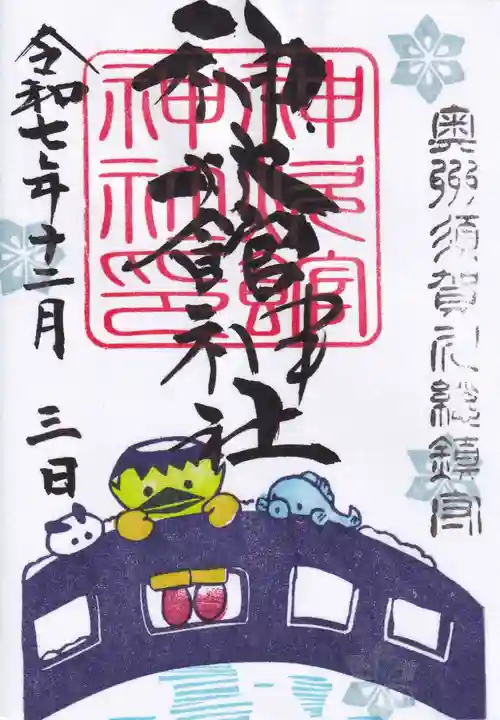 奥州須賀川総鎮守
神炊館神社
神炊館
神社印
令和七年十二月 三日